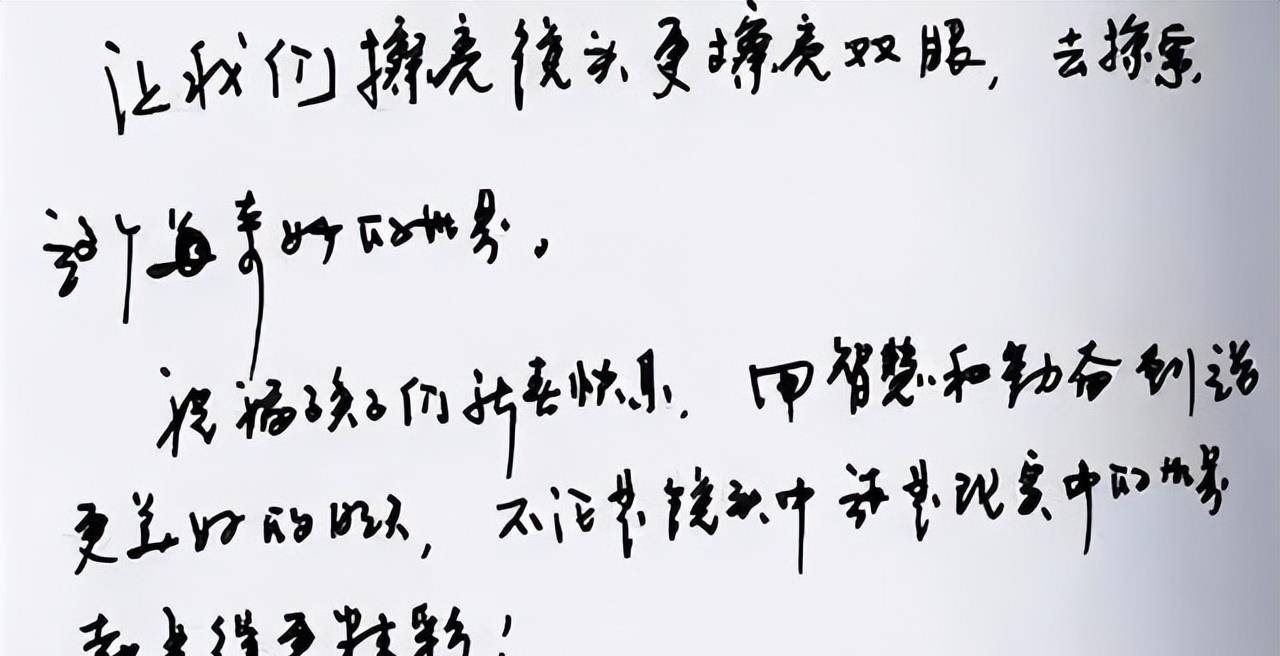 让我们擦亮镜头更擦亮双眼，去探索
这个每奇妙的世界。
祝福孩子们新春快乐，用智慧和勤奋创造
更美好的明天，不论是镜头中还是现实中的世界
都变得更精彩！